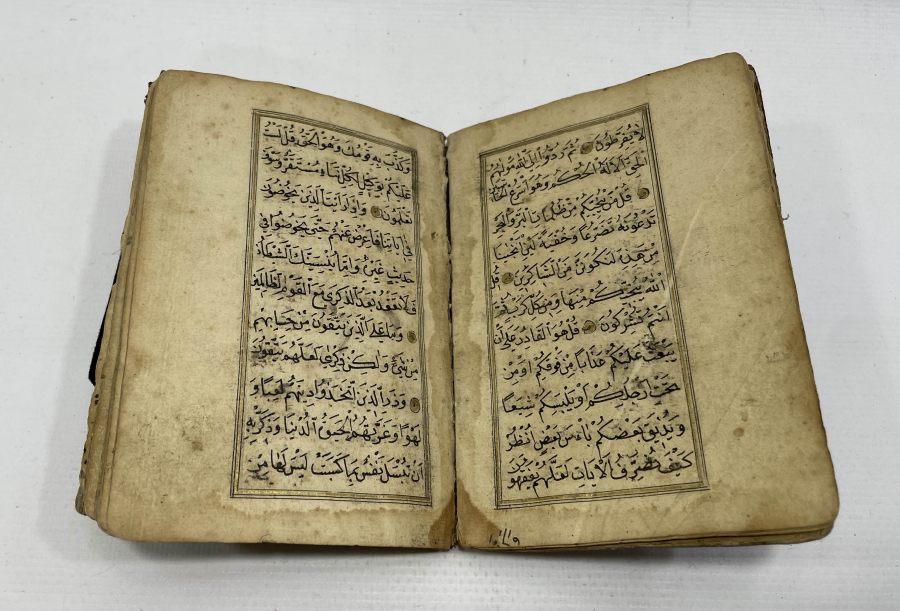 لَا يُفَرِّطُونَ ثُمَّ رُدُّوا إِلَى اللَّهِ مَوْلَاهُمُ
الْحَقِّ أَلَا لَهُ الْحُكْمُ وَهُوَ أَسْرَعُ الْحَاسِبِينَ
قُلْ مَنْ يُنَجِّيكُمْ مِنْ ظُلُمَاتِ الْبَرِّ وَالْبَحْرِ
تَدْعُونَهُ تَضَرُّعًا وَخُفْيَةً لَئِنْ أَنْجَيْتَنَا
مِنْ هَذِهِ لَنَكُونَنَّ مِنَ الشَّاكِرِينَ قُلِ
اللَّهُ يُنَجِّيكُمْ مِنْهَا وَمِنْ كُلِّ كَرْبٍ ثُمَّ
أَنْتُمْ تُشْرِكُونَ قُلْ هُوَ الْقَادِرُ عَلَى أَنْ
يَبْعَثَ عَلَيْكُمْ عَذَابًا مِنْ فَوْقِكُمْ أَوْ مِنْ
تَحْتِ أَرْجُلِكُمْ أَوْ يَلْبِسَكُمْ شِيَعًا
وَيُذِيقَ بَعْضَكُمْ بَأْسَ بَعْضٍ انْظُرْ
كَيْفَ نُصَرِّفُ الْآيَاتِ لَعَلَّهُمْ يَفْقَهُونَ
وَكَذَّبَ بِهِ قَوْمُكَ وَهُوَ الْحَقُّ قُلْ لَسْتُ
عَلَيْكُمْ بِوَكِيلٍ لِكُلِّ نَبَإٍ مُسْتَقَرٌّ وَسَوْفَ
تَعْلَمُونَ وَإِذَا رَأَيْتَ الَّذِينَ يَخُوضُونَ
فِي آيَاتِنَا فَأَعْرِضْ عَنْهُمْ حَتَّى يَخُوضُوا فِي
حَدِيثٍ غَيْرِهِ وَإِمَّا يُنْسِيَنَّكَ الشَّيْطَانُ
فَلَا تَقْعُدْ بَعْدَ الذِّكْرَى مَعَ الْقَوْمِ الظَّالِمِينَ
وَمَا عَلَى الَّذِينَ يَتَّقُونَ مِنْ حِسَابِهِمْ
مِنْ شَيْءٍ وَلَكِنْ ذِكْرَى لَعَلَّهُمْ يَتَّقُونَ
وَذَرِ الَّذِينَ اتَّخَذُوا دِينَهُمْ لَعِبًا وَ
لَهْوًا وَغَرَّتْهُمُ الْحَيَوةُ الدُّنْيَا وَذَكِّرْ بِهِ
أَنْ تُبْسَلَ نَفْسٌ بِمَا كَسَبَتْ لَيْسَ لَهَا مِنْ